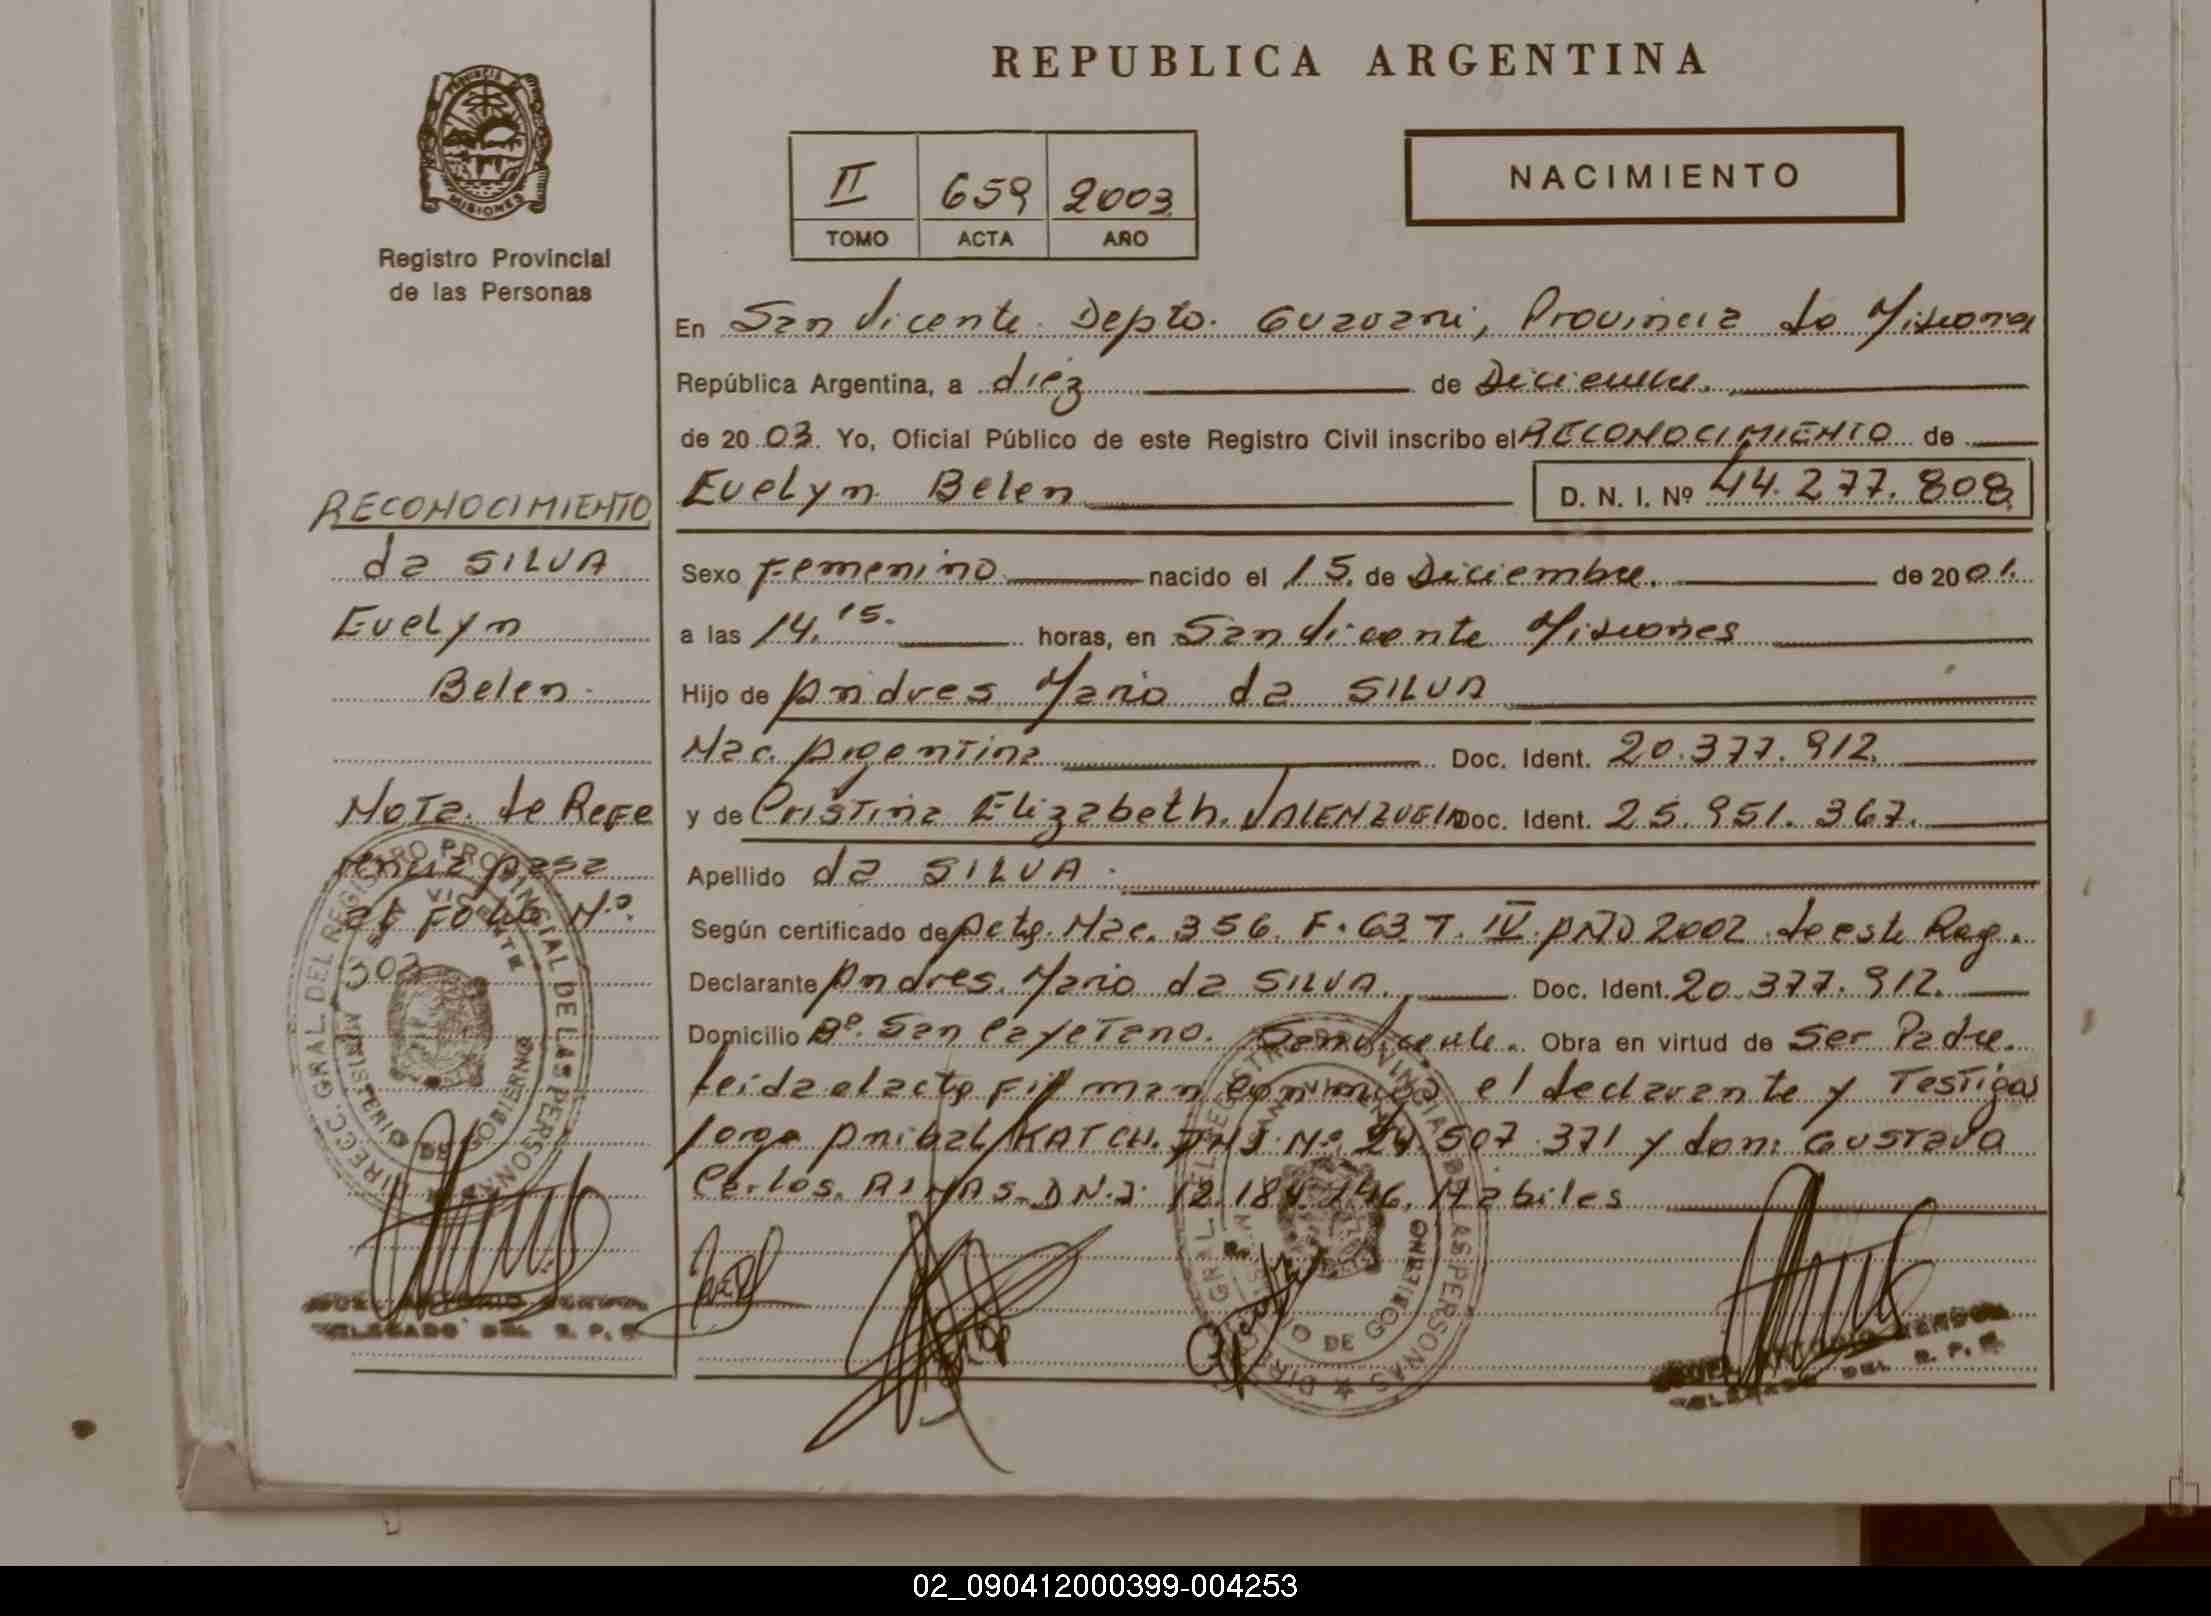 REPUBLICA ARGENTINA
PROVINCIA DE
MISIONES
Registro Provincial
de las Personas
II 659 2003
TOMO ACTA AÑO
NACIMIENTO
En San Vicente Depto. Guarani, Provincia de Misiones
República Argentina, a diez de Diciembre.
de 2003. Yo, Oficial Público de este Registro Civil inscribo el RECONOCIMIENTO de
Evelyn Belen D. N. I. Nº 44.277.808
Sexo Femenino nacido el 15. de Diciembre. de 2001.
a las 14,15. horas, en San Vicente Misiones
Hijo de Andres Mario da SILVA
Nac. Argentina Doc. Ident. 20.377.912.
y de Cristina Elizabeth. VALENZUELA Doc. Ident. 25.951.367.
Apellido da SILVA.
Según certificado de Acta. Nac. 356. F. 63 T. IV. AÑO 2002 de este Reg.
Declarante Andres Mario da SILVA. Doc. Ident. 20.377.912.
Domicilio Bº. San Cayetano. San Vicente. Obra en virtud de Ser Padre.
Leida el acta Firman conmigo el declarante y Testigos
Jorge Anibal KATCH. DNI Nº 24.507.371 y don: Gustavo
Carlos. DN.I 12.184. Habiles
RECONOCIMIENTO
da SILVA
Evelyn
Belen.
Nota. de Refe
rencia pasa
al Folio Nº.
302
DIRECC. GRAL. DEL REGISTRO PROVINCIAL DE LAS PERSONAS
SAN VICENTE
MINISTERIO DE GOBIERNO
DELEGADO DEL R. P. P.
DIRECC. GRAL. DEL REGISTRO PROVINCIAL DE LAS PERSONAS
SAN VICENTE
MINISTERIO DE GOBIERNO
DELEGADO DEL R. P. P.
02_090412000399-004253